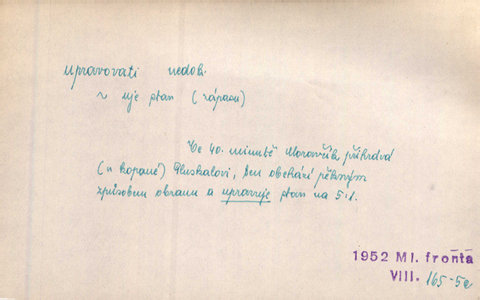 upravovati nedok.
~ uje stav (zápasu)
Ve 40. minutě Moravčík přihrává
(v kopané) Pluskalovi, ten obchází pěkným
způsobem obranu a upravuje stav na 5:1.
1952 Ml. fronta
VIII. 165-5e